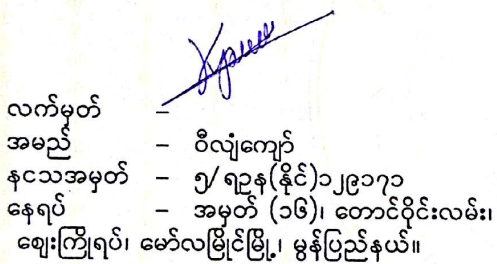 လက်မှတ် –
အမည် – ဝီလျံကျော်
နငသအမှတ် – ၅/ရဥန(နိုင်)၁၂၉၁၇၁
နေရပ် – အမှတ် (၁၆)၊ တောင်ဝိုင်းလမ်း၊
ဈေးကြိုရပ်၊ မော်လမြိုင်မြို့၊ မွန်ပြည်နယ်။